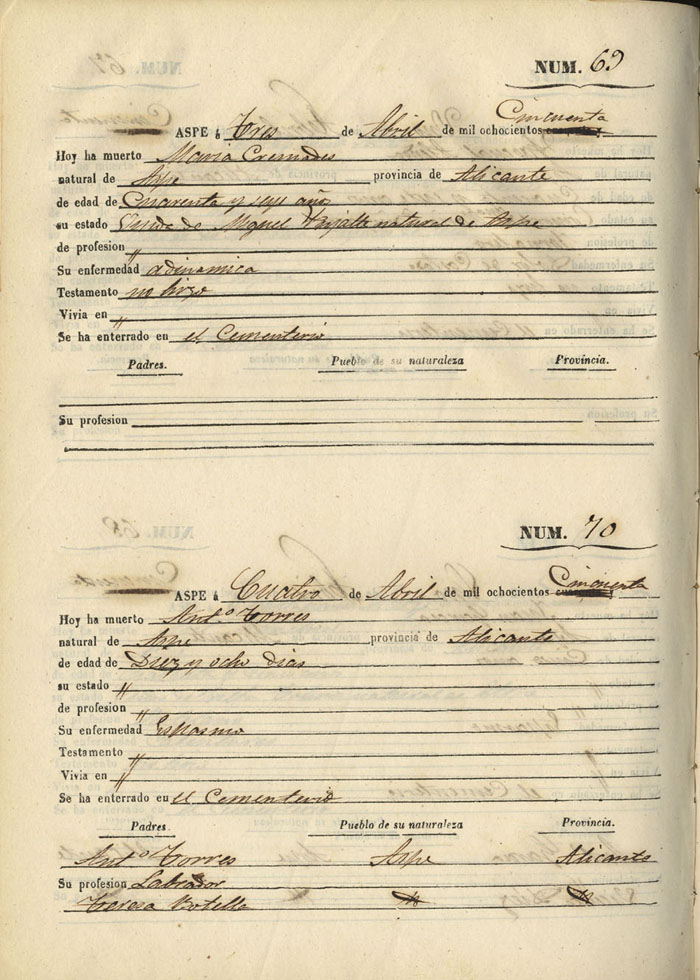 NUM. 69
Cincuenta
ASPE á Tres de Abril de mil ochocientos
Hoy ha muerto Maria Cremades
natural de Aspe provincia de Alicante
de edad de Cuarenta y seis años
su estado Viuda de Miguel natural de Aspe
de profesion "
Su enfermedad adinamica
Testamento no hizo
Vivia en "
Se ha enterrado en el Cementerio
Padres. Pueblo de su naturaleza Provincia.
Su profesion
NUM. 70
ASPE á Cuatro de Abril de mil ochocientos Cincuenta
Hoy ha muerto Antº Torres
natural de Aspe provincia de Alicante
de edad de Diez y ocho dias
su estado "
de profesion "
Su enfermedad Espasmo
Testamento "
Vivia en "
Se ha enterrado en el Cementerio
Padres. Pueblo de su naturaleza Provincia.
Antº Torres Aspe Alicante
Su profesion Labrador
Teresa Botella